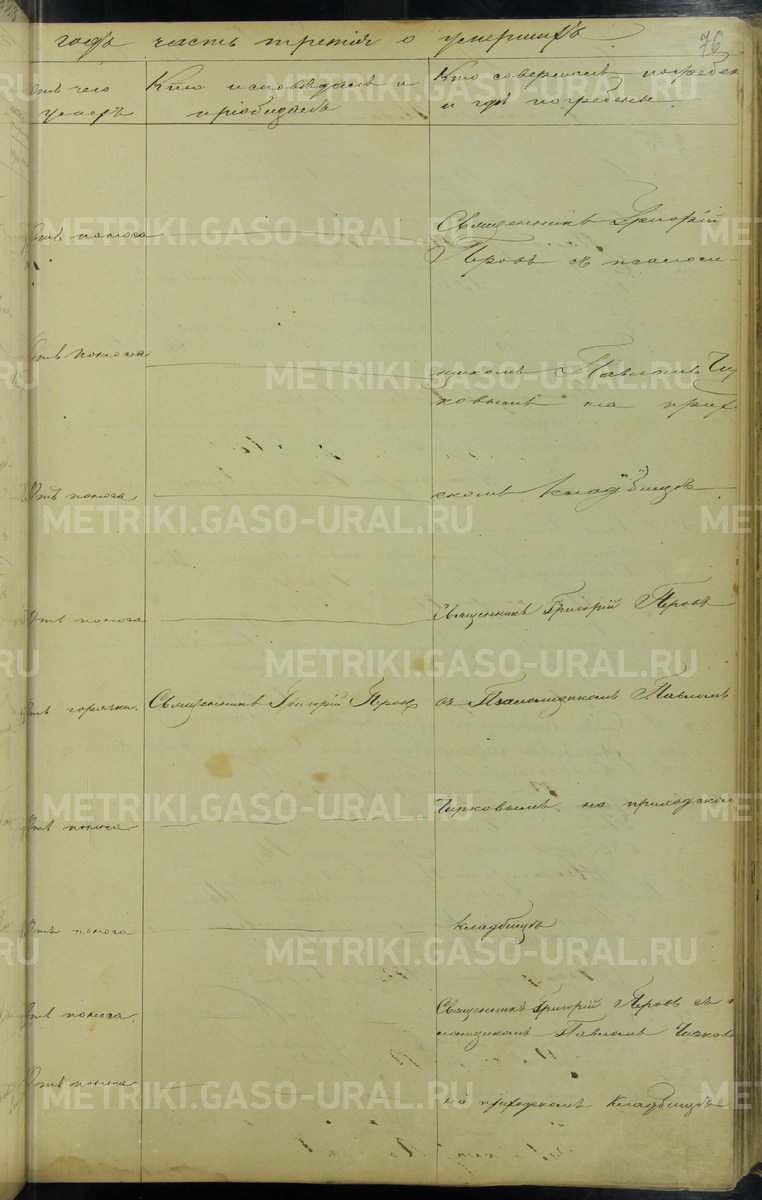 года часть третія о умершихъ
76
Отъ чего
умеръ
Кто исповѣдалъ и
пріобщалъ
Кто совершалъ погребен
и гдѣ погребены.
Отъ поноса
Священникъ Григорій
Перовъ съ псаломщ-
Отъ поноса
щикомъ Павломъ Чир
ковымъ на прих-
Отъ поноса
скомъ кладбищѣ
Отъ поноса
Священникъ Григорій Перовъ
Отъ горячки.
Священникъ Григорій Перовъ
съ Псаломщикомъ Павломъ
Чирковымъ, на приходском
Отъ поноса
Отъ поноса
кладбищѣ
Отъ поноса.
Священникъ Григорій Перовъ съ п
саломщикомъ Павломъ Чирков
Отъ поноса
на приходскомъ кладбищѣ
METRIKI.GASO-URAL.RU